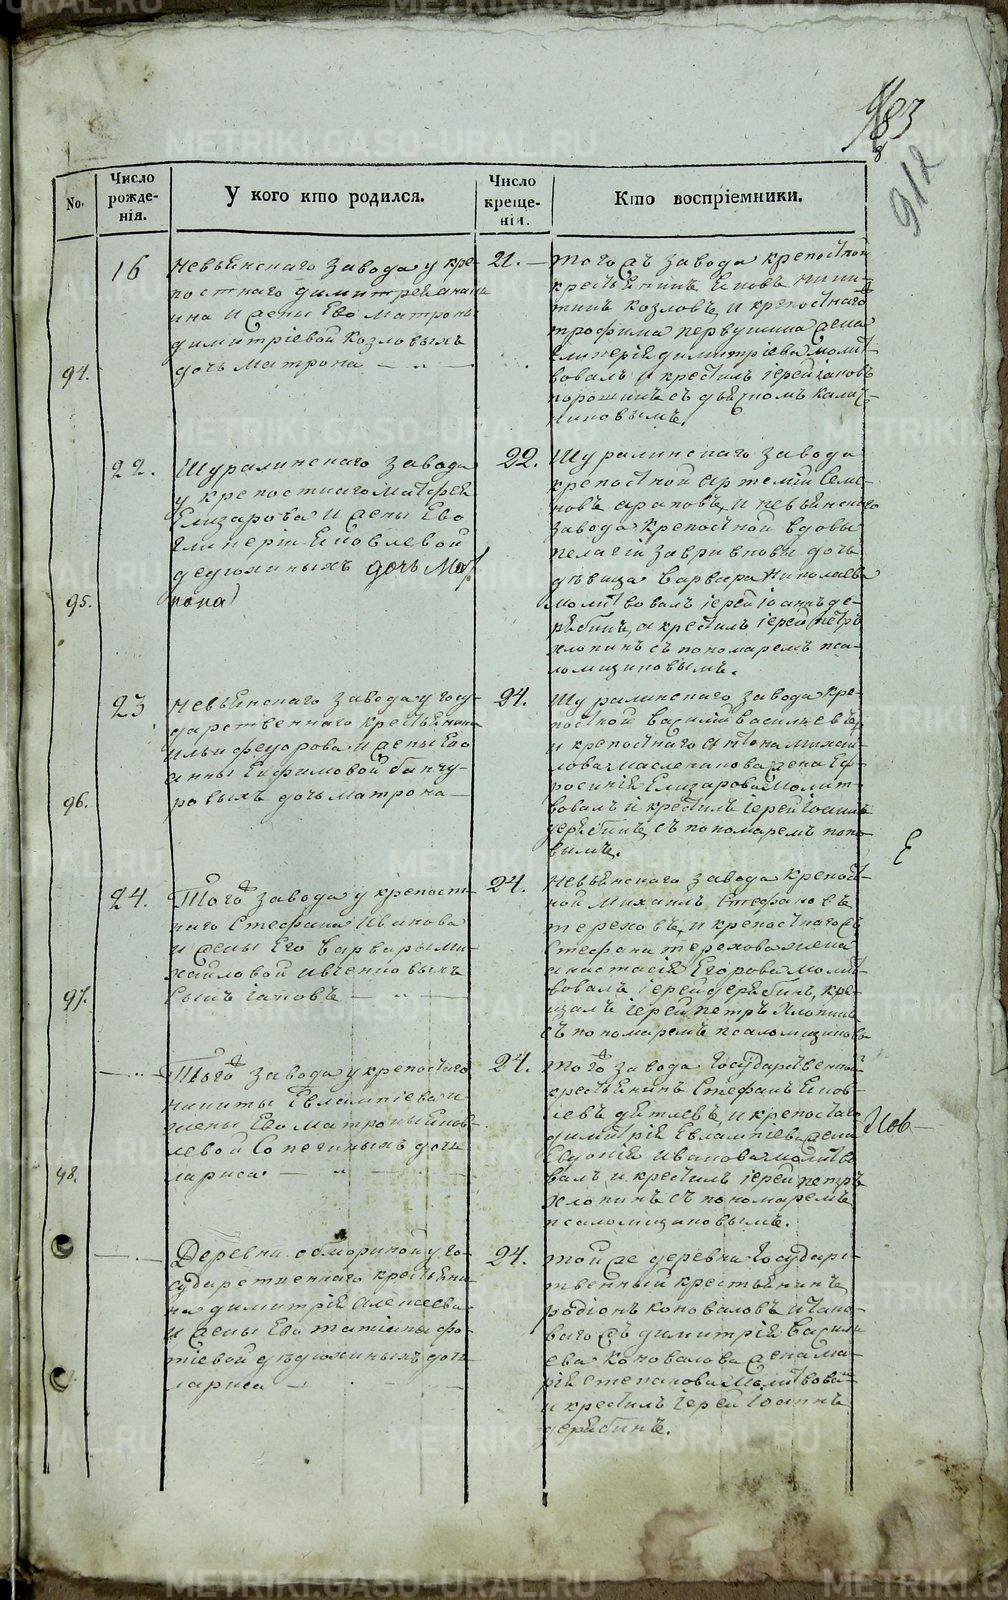 183
912
No.
Число рожде-
нія.
У кого кто родился.
Число креще-
нія.
Кто воспріемники.
94.
16
Невьянскаго завода у кре-
постнаго Димитрея Анань
ина и жены Его Матроны
Димитріевой Козловыхъ
дочь Матрона
21.
тогожъ завода крепостной
крестьянинъ
Козловъ, и крепостнаго
трофима первушина жена
Гликерія димитріева молит-
вовалъ и крестилъ іерей іаковъ
порошинъ съ
95.
22.
Шуралинскаго завода
у крепостнаго Матфея
Елизарова и жены Его
Гликеріи Яковлевой
дедюхиныхъ дочь Мат
рона
22.
Шуралинскаго завода
крепостной Артемій Семе-
новъ Араповъ, и невьянскаго
завода крепостной вдовы
пелагіи дочь
девица Варвара Николаева
молитвовалъ іерей іоаннъ де-
рябинъ, а крестилъ іерей петръ
хлопинъ съ пономаремъ пса-
ломщиковымъ.
96.
23
Невьянскаго завода у госу-
дарственнаго крестьянина
Ильи федорова и жены Его
Анны Евфимовой
дочь Матрона
24.
Шуралинскаго завода кре-
постной василій васильевъ,
и крепостнаго Антона Михаи-
лова масленикова жена Еф-
росинія Елизарова молит-
вовалъ и крестилъ іерей іоаннъ
дерябинъ, съ пономаремъ попо-
вымъ.
97.
24.
Того завода у крепост-
наго Стефана Иванова
и жены Его Варвары Ми-
хайловой
сынъ іаковъ
24.
Невьянскаго завода крепост-
ной Михаилъ Стефановъ
тереховъ, и крепостнагожъ
Стефана терехова жена
Анастасія Егорова молит-
вовалъ іерей дерябинъ, кре-
щалъ іерей петръ хлопинъ
съ пономаремъ псаломщиковы
98.
Того завода у крепостнаго
никиты Евлампіева и
жены Его матроны Яков-
левой дочь
лариса
24.
того завода Государственной
крестьянинъ Стефанъ Яков-
левъ и крепостнаго
димитрія Евлампіева жена
Евдокія Иванова молитво
валъ и крестилъ іерей петръ
хлопинъ съ пономаремъ
псаломщиковымъ.
Иов
Деревни у го-
сударственнаго крестьяни-
на димитрія Алексеева
и жены Его татіаны фо-
тіевой дедюхиныхъ дочь
лариса
24.
той же деревни Государс-
твенный крестьянинъ
родіонъ Коноваловъ
димитрія Василь
ева Коновалова жена Ма-
рія Степанова Молитвовалъ
и крестилъ іерей іоаннъ
дерябинъ.
METRIKI.GASO-URAL.RU